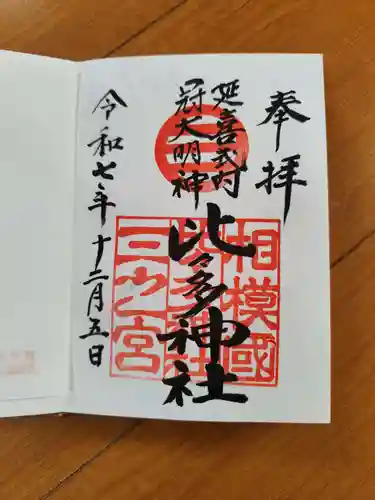 奉拝
延喜式内
冠大明神
比々多神社
令和七年十二月五日
相模國
三之宮